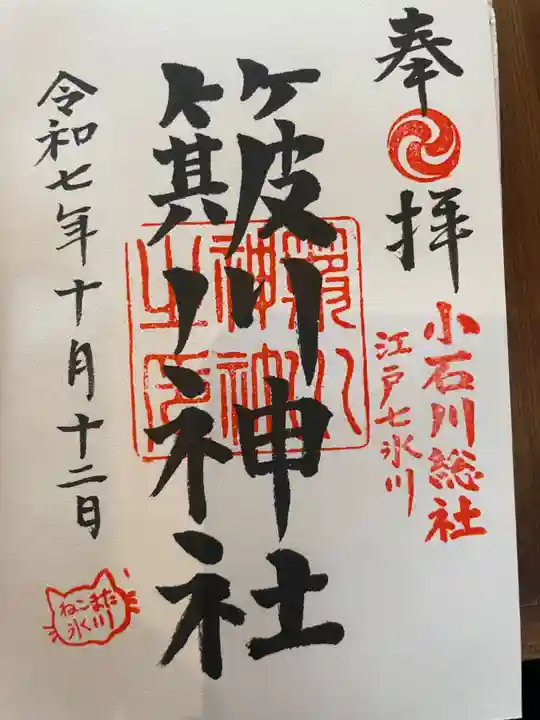 奉拝
小石川総社
江戸七氷川
簸川神社
令和七年十月十二日
ねこまた
氷川